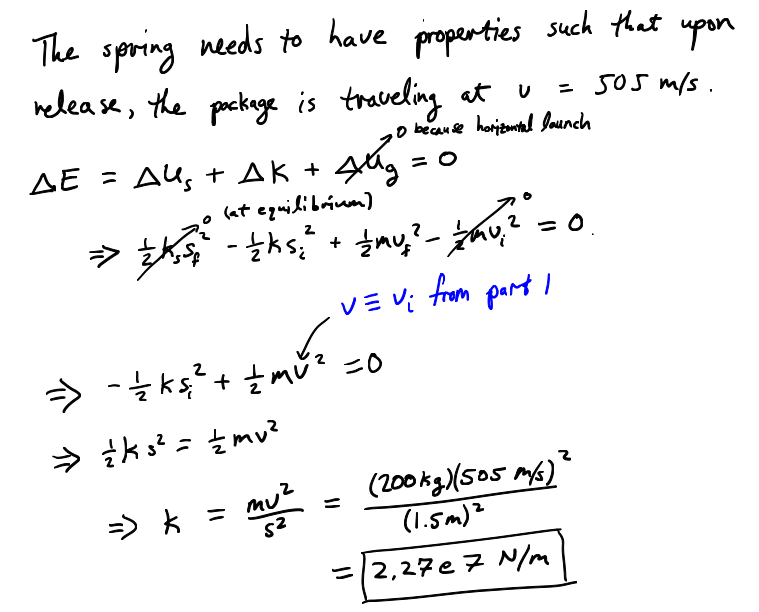 The spring needs to have properties such that upon
release, the package is traveling at v = 505 m/s.
0 because horizontal launch
ΔE = ΔU_s + ΔK + ΔU_g = 0
0 (at equilibrium) 0
⇒ ½k_s s_f² - ½k s_i² + ½mv_f² - ½mv_i² = 0.
v ≡ v_i from part 1
⇒ -½k s_i² + ½mv² = 0
⇒ ½k s² = ½mv²
⇒ k = mv²/s² = (200kg)(505 m/s)²/(1.5m)²
= 2.27e7 N/m